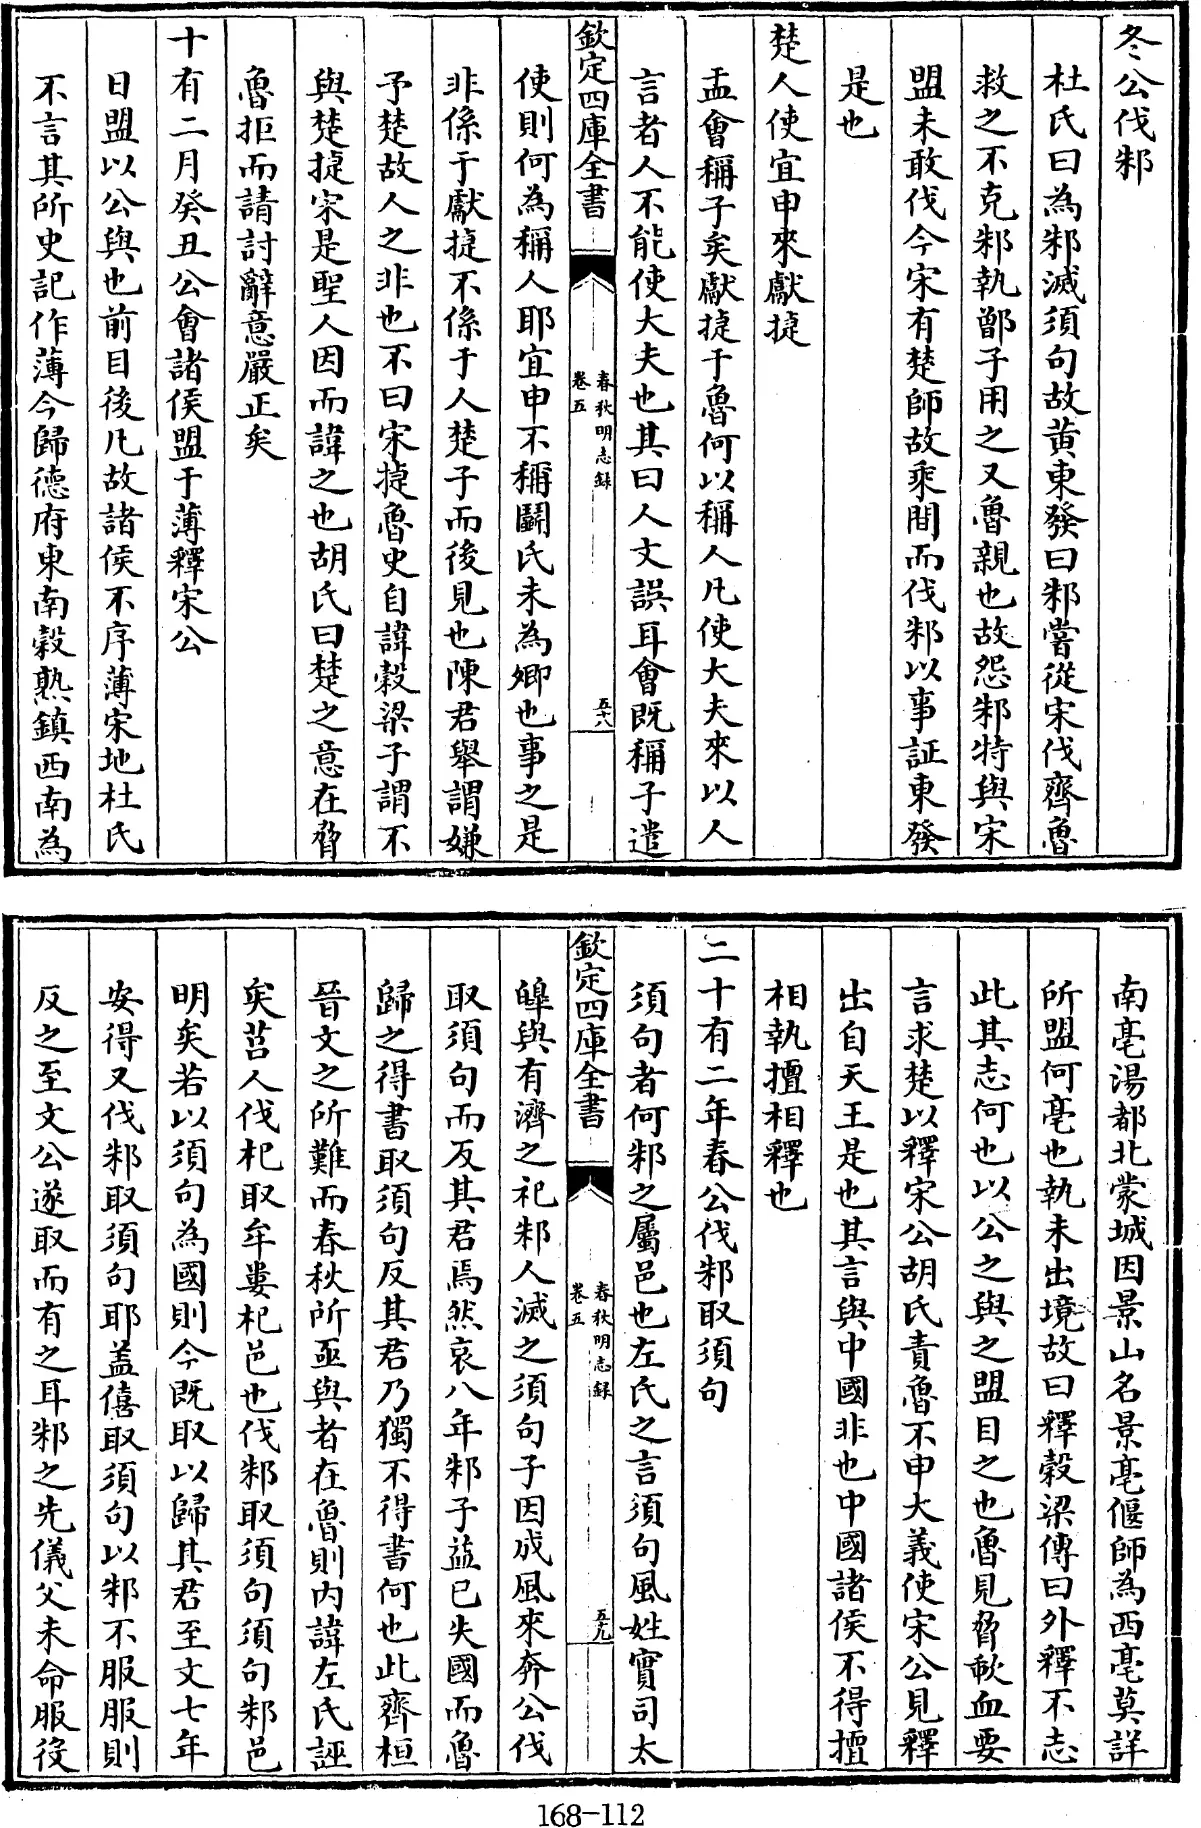 冬公伐邾
杜氏曰為邾滅須句故黃東發曰邾嘗從宋伐齊魯
救之不克邾執鄫子用之又魯親也故怨邾特與宋
盟未敢伐今宋有楚師故乘間而伐邾以事証東發
是也
楚人使宜申來獻捷
盂會稱子矣獻捷于魯何以稱人凡使大夫來以人
言者人不能使大夫也其曰人文誤耳會既稱子遣
欽定四庫全書
春秋明志錄
卷五
五十八
使則何為稱人耶宜申不稱鬭氏未為卿也事之是
非係于獻捷不係于人楚子而後見也陳君舉謂嫌
予楚故人之非也不曰宋捷魯史自諱穀梁子謂不
與楚捷宋是聖人因而諱之也胡氏曰楚之意在脅
魯拒而請討辭意嚴正矣
十有二月癸丑公會諸侯盟于薄釋宋公
日盟以公與也前目後凡故諸侯不序薄宋地杜氏
不言其所史記作薄今歸德府東南穀熟鎮西南為
南亳湯都北蒙城因景山名景亳偃師為西亳莫詳
所盟何亳也執未出境故曰釋穀梁傳曰外釋不志
此其志何也以公之與之盟目之也魯見脅歃血要
言求楚以釋宋公胡氏責魯不申大義使宋公見釋
出自天王是也其言與中國非也中國諸侯不得擅
相執擅相釋也
二十有二年春公伐邾取須句
須句者何邾之屬邑也左氏之言須句風姓實司太
欽定四庫全書
春秋明志録
卷五
五十九
皥與有濟之祀邾人滅之須句子因成風來奔公伐
取須句而反其君焉然哀八年邾子益已失國而魯
歸之得書取須句反其君乃獨不得書何也此齊桓
晉文之所難而春秋所亟與者在魯則內諱左氏誣
矣莒人伐杞取牟婁杞邑也伐邾取須句須句邾邑
明矣若以須句為國則今既取以歸其君至文七年
安得又伐邾取須句耶盖僖取須句以邾不服服則
反之至文公遂取而有之耳邾之先儀父未命服役
168-112